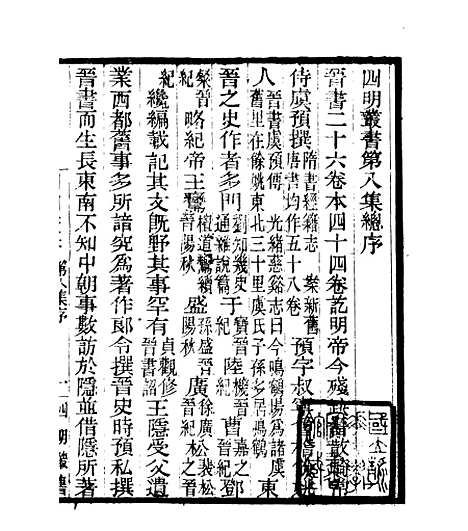 四明叢書第八集總序
晉書二十六卷本四十四卷訖明帝今殘缺晉散騎常
侍虞預撰隋書經籍志 案新舊唐書均作五十八卷預字叔
人晉書虞預傳 光緒慈谿志曰今鳴鶴場爲諸虞舊里在餘姚東北三十里虞氏子孫多居鳴鶴東
晉之史作者多門劉知幾史通雜說篇于寶晉紀陸機晉紀曹嘉之晉紀鄧
粲晉紀略紀帝王鸞檀道鸞續晉陽秋盛孫盛晉陽秋廣徐廣晉紀松裴松
纔編載記其文旣野其事罕有貞觀修晉書詔王隱受父遺
業西都舊事多所諳究爲著作郞令撰晉史時預私撰
晉書而生長東南不知中朝事數訪於隱並借隱所著
第八集序 一 四明叢書